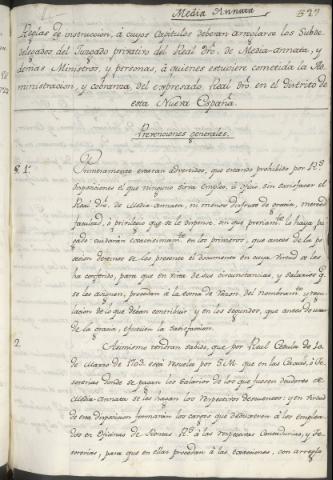 Media Annata 527
Reglas de instruccion, á cuyos Capitulos deberan arreglarse los Subde
delegados del Juzgado privativo del Real Dro. de Media-annata, y
demas Ministros, y personas, á quienes estuviere cometida la Ad
ministracion, y cobranza del expresado Real Dro. en el distrito de
esta Nueva España.
Prevenciones generales.
§. 1º. Primeramente estaran advertidos, que estando prohibido por Rs.
disposiciones el que ninguno sirva Empleo, ú oficio, sin satisfacer el
Real dro. de Media-annata, ni menos disfrute de gracia, merced
facultad, ó privilegio que se le dispense, sin que previamte. lo haya pa
gado: cuidarán en los primeros, que antes de la po
sesion deven se les presente el documento en cuya virtud se les
ha conferido, para que en vista de sus circunstancias, y salarios q.
se les asignen, procedan á la toma de razon del nombramto. y regu
lacion de lo que deban contribuir y en los segundos, que antes de usar
de la gracia, efectuen la satisfaccion.
2. Asimismo tendran sabido, que por Real Cedula de 10. de
Marzo de 1703. está resuelto por S.M. que en las Caxas, ó Te
sorerias donde se pagan los salarios de los que fuesen deudores de
Media-annata se les hagan los respectivos descuentos; y en virtud
de esta disposicion formarán los cargos que á los emplea
dos en Oficinas de Rentas Rs. á las respectivas Contadurias, y Te
sorerias, para que en ellas procedan á las exacciones, con arreglo